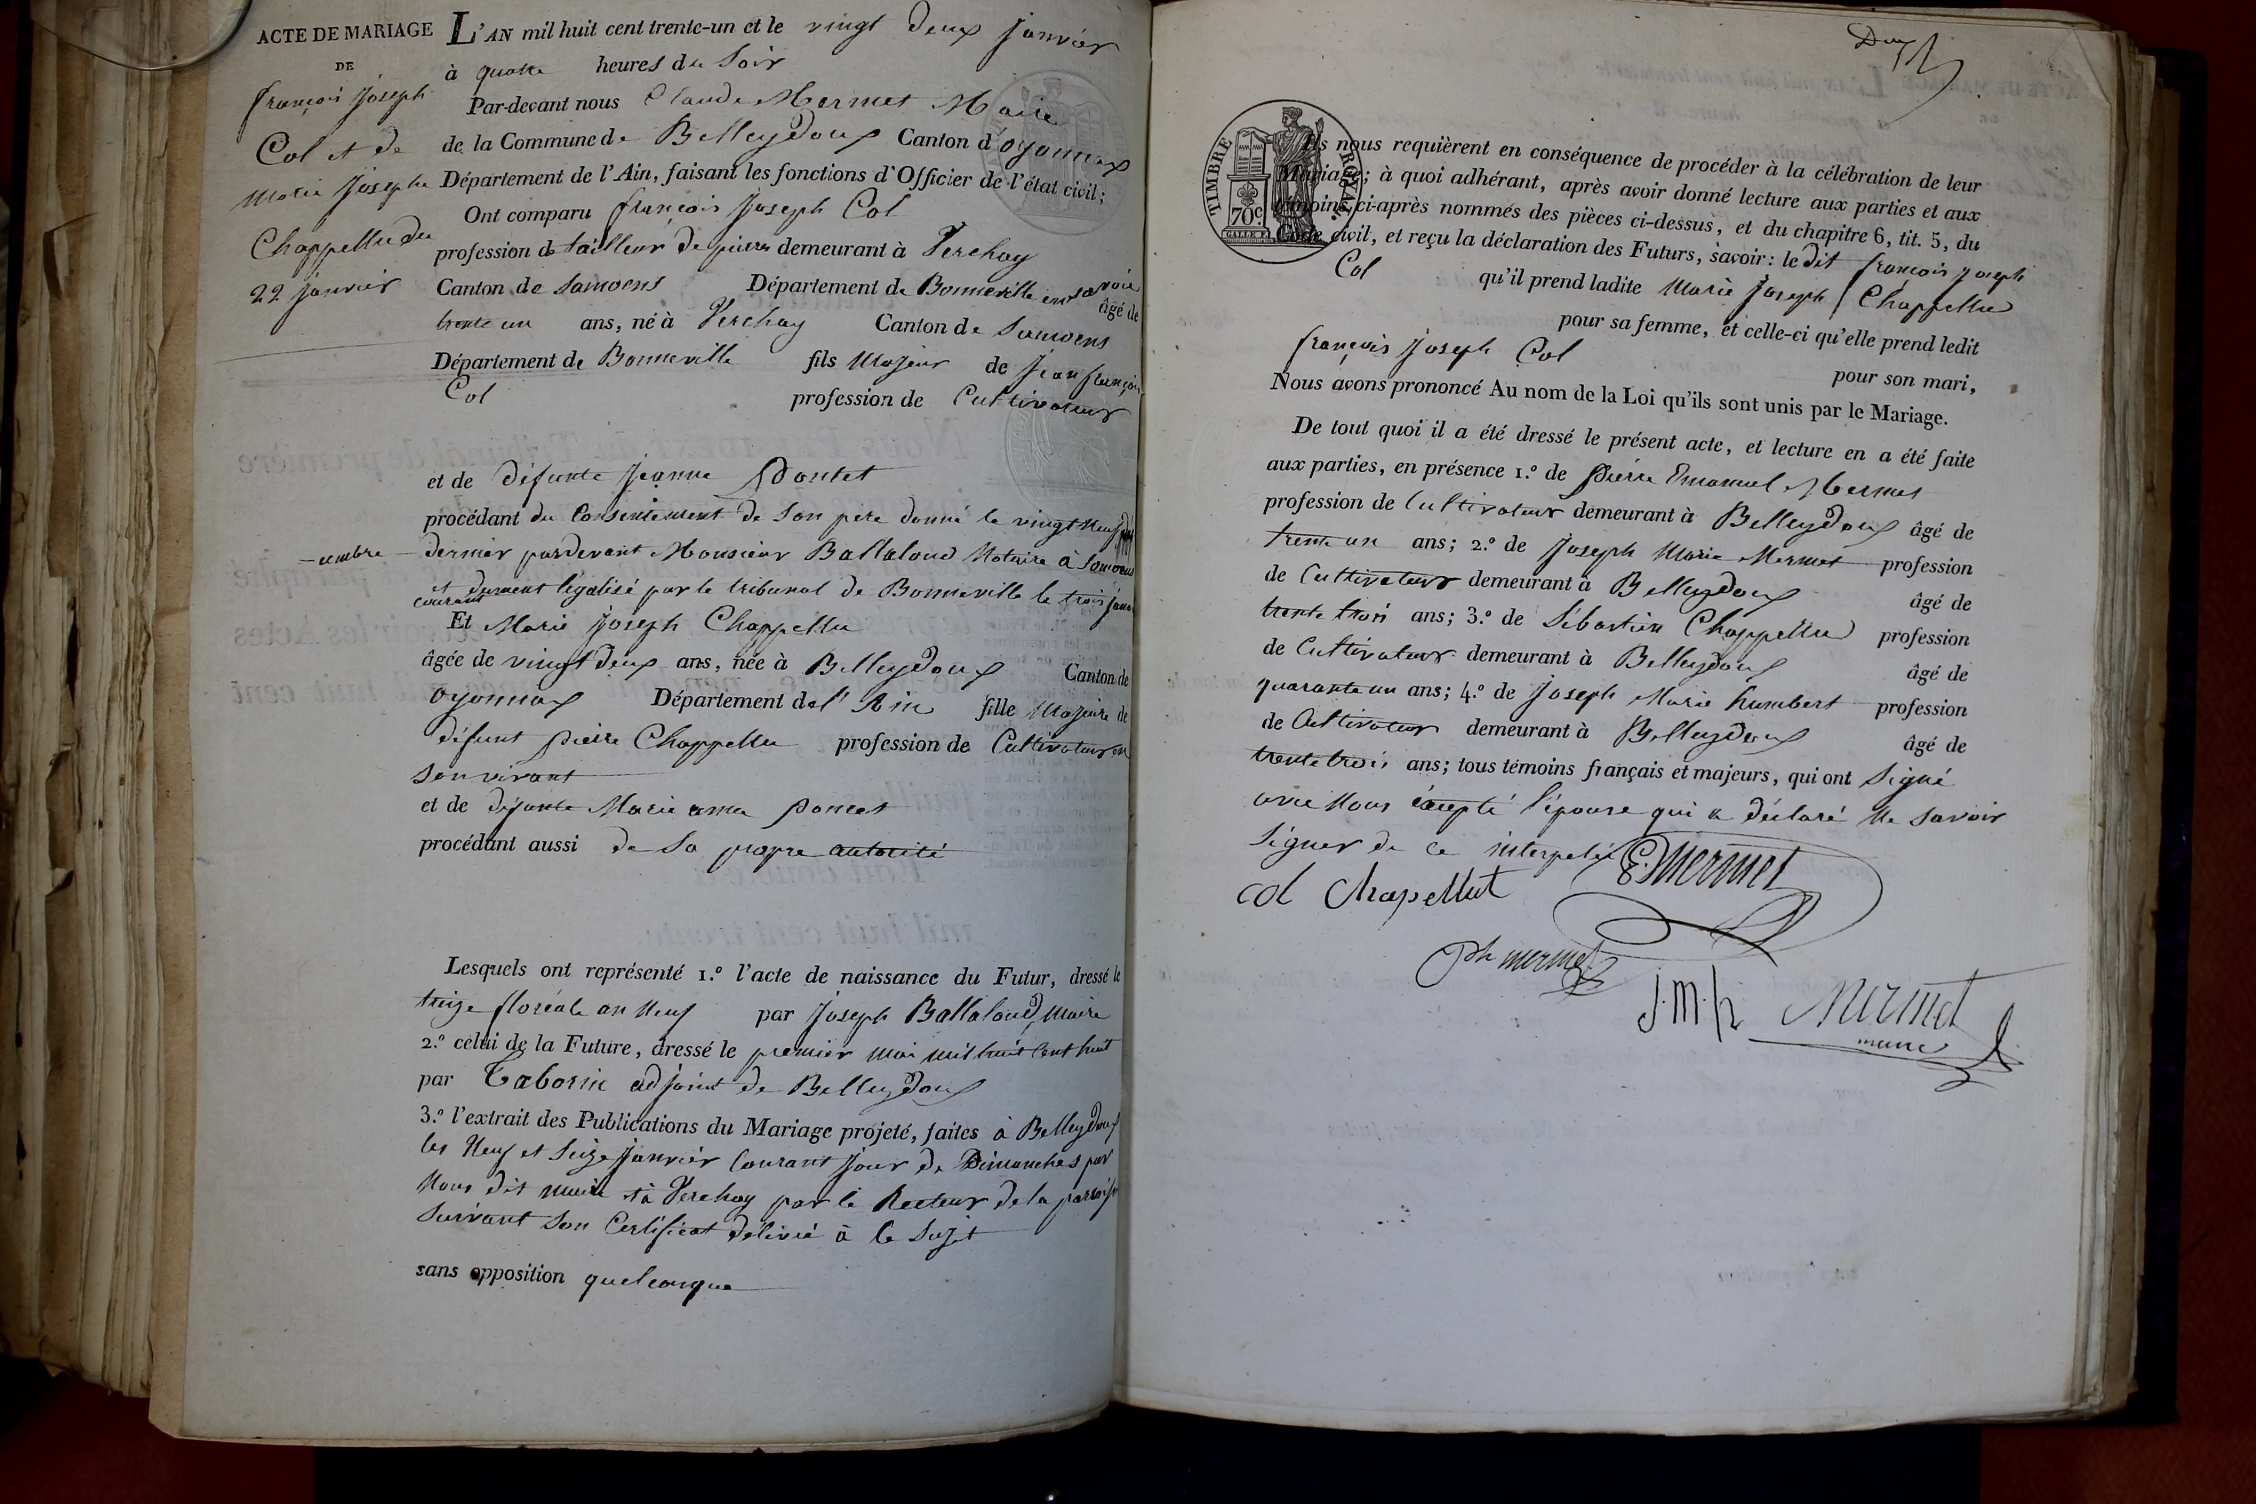 ACTE DE MARIAGE
DE
françois Joseph
Col et de
Marie Josephe
Chappellu du
22 janvier
L'AN mil huit cent trente-un et le vingt deux janvier
à quatre heures du Soir
Par-devant nous Claude Mermet Maire
de la Commune de Belleydoux Canton d'oyonnax
Département de l'Ain, faisant les fonctions d'Officier de l'état civil;
Ont comparu françois Joseph Col
profession de tailleur de pierre demeurant à Verchay
Canton de Samoens Département de Bonneville en savoie âgé de
trente un ans, né à Verchay Canton de Samoens
Département de Bonneville fils Majeur de Jean françois
Col profession de Cultivateur
et de défunte Jeanne
procédant du Consentement de Son père donné le vingt neuf
-cembre dernier pardevant Monsieur Ballaloud Notaire à Samoens
et dument légalisé par le tribunal de Bonneville le trois janv
courant
Et Marie Joseph Chappellu
âgée de vingt deux ans, née à Belleydoux Canton de
oyonnax Département de l'Ain fille Majeure de
défunt pierre Chappellu profession de Cultivateur en
son vivant
et de défunte Marie anne poncet
procédant aussi de Sa propre autorité
Lesquels ont représenté 1.° l'acte de naissance du Futur, dressé le
treize floréale an Neuf par Joseph Ballaloud, Maire
2.° celui de la Future, dressé le premier Mai mil huit Cent huit
par Taborin adjoint de Belleydoux
3.° l'extrait des Publications du Mariage projeté, faites à Belleydoux
les Neuf et Seize Janvier Courant Jour de Dimanches par
Nous dit Maire et à Verchay par le Recteur de la paroisse
Suivant Son Certificat délivré à ce Sujet
sans opposition quelconque
Deux
TIMBRE ROYAL
70c
Ils nous requièrent en conséquence de procéder à la célébration de leur
Mariage; à quoi adhérant, après avoir donné lecture aux parties et aux
témoins ci-après nommés des pièces ci-dessus, et du chapitre 6, tit. 5, du
Code civil, et reçu la déclaration des Futurs, sàvoir: le dit françois Joseph
Col qu'il prend ladite Marie Joseph Chappellu
pour sa femme, et celle-ci qu'elle prend ledit
françois Joseph Col pour son mari,
Nous avons prononcé Au nom de la Loi qu'ils sont unis par le Mariage.
De tout quoi il a été dressé le présent acte, et lecture en a été faite
aux parties, en présence 1.° de pierre Emanuel Mermet
profession de Cultivateur demeurant à Belleydoux âgé de
trente un ans; 2.° de Joseph Marie Mermet profession
de Cultivateur demeurant à Belleydoux âgé de
trente trois ans; 3.° de Sébastien Chappellu profession
de Cultivateur demeurant à Belleydoux âgé de
quarante un ans; 4.° de Joseph Marie humbert profession
de Cultivateur demeurant à Belleydoux âgé de
trente trois ans; tous témoins français et majeurs, qui ont Signé
avec Nous éxcepté l'épouse qui a déclaré Ne Savoir
Signer de ce interpelée
E. Mermet
Col Chapellut
Mermet
J. M. h Mermet
maire